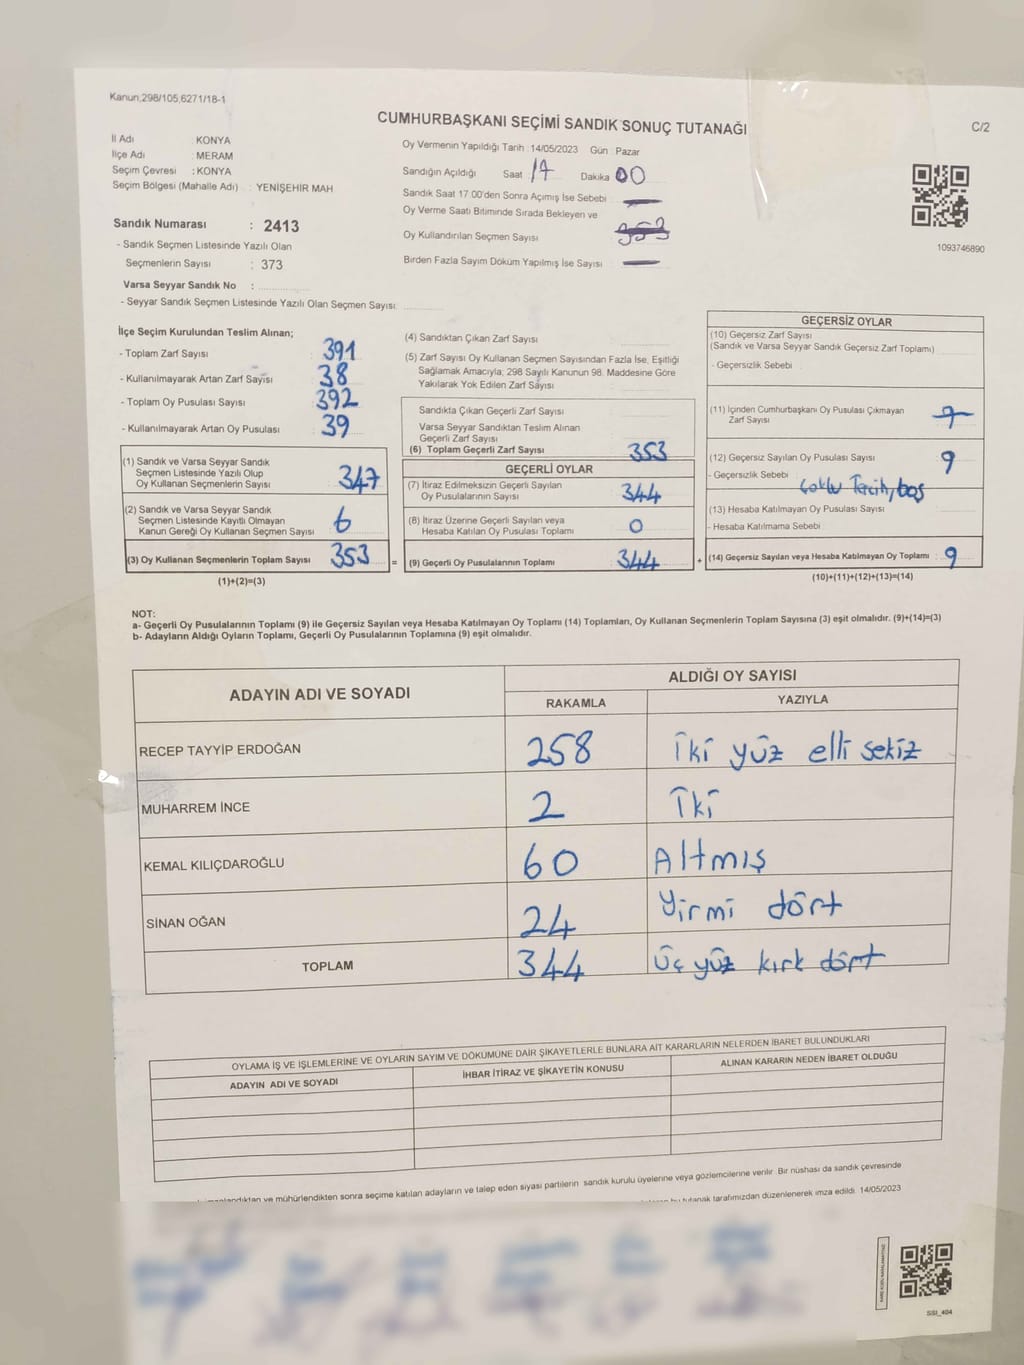 Kanun,298/105,6271/18-1
CUMHURBAŞKANI SEÇİMİ SANDIK SONUÇ TUTANAĞI
C/2
İl Adı : KONYA
İlçe Adı : MERAM
Seçim Çevresi : KONYA
Seçim Bölgesi (Mahalle Adı) : YENİŞEHİR MAH.
Oy Vermenin Yapıldığı Tarih : 14/05/2023 Gün : Pazar
Sandığın Açıldığı Saat 17 Dakika 00
Sandık Saat 17.00'den Sonra Açımış İse Sebebi
Oy Verme Saati Bitiminde Sırada Bekleyen ve
Oy Kullandırılan Seçmen Sayısı
Birden Fazla Sayım Döküm Yapılmış İse Sayısı
1093746890
Sandık Numarası : 2413
- Sandık Seçmen Listesinde Yazılı Olan
Seçmenlerin Sayısı : 373
Varsa Seyyar Sandık No :
- Seyyar Sandık Seçmen Listesinde Yazılı Olan Seçmen Sayısı:
İlçe Seçim Kurulundan Teslim Alınan;
- Toplam Zarf Sayısı 391
- Kullanılmayarak Artan Zarf Sayısı 38
- Toplam Oy Pusulası Sayısı 392
- Kullanılmayarak Artan Oy Pusulası 39
(1) Sandık ve Varsa Seyyar Sandık
Seçmen Listesinde Yazılı Olup
Oy Kullanan Seçmenlerin Sayısı 347
(2) Sandık ve Varsa Seyyar Sandık
Seçmen Listesinde Kayıtlı Olmayan
Kanun Gereği Oy Kullanan Seçmen Sayısı 6
(3) Oy Kullanan Seçmenlerin Toplam Sayısı 353 =
(1)+(2)=(3)
(4) Sandıktan Çıkan Zarf Sayısı
(5) Zarf Sayısı Oy Kullanan Seçmen Sayısından Fazla İse, Eşitliği
Sağlamak Amacıyla; 298 Sayılı Kanunun 98. Maddesine Göre
Yakılarak Yok Edilen Zarf Sayısı
Sandıkta Çıkan Geçerli Zarf Sayısı
Varsa Seyyar Sandıktan Teslim Alınan
Geçerli Zarf Sayısı
(6) Toplam Geçerli Zarf Sayısı 353
GEÇERLİ OYLAR
(7) İtiraz Edilmeksizin Geçerli Sayılan
Oy Pusulalarının Sayısı 344
(8) İtiraz Üzerine Geçerli Sayılan veya
Hesaba Katılan Oy Pusulası Toplamı 0
(9) Geçerli Oy Pusulalarının Toplamı 344 +
GEÇERSİZ OYLAR
(10) Geçersiz Zarf Sayısı
(Sandık ve Varsa Seyyar Sandık Geçersiz Zarf Toplamı)
- Geçersizlik Sebebi
(11) İçinden Cumhurbaşkanı Oy Pusulası Çıkmayan
Zarf Sayısı
(12) Geçersiz Sayılan Oy Pusulası Sayısı 9
- Geçersizlik Sebebi Çoklu Tercih, boş
(13) Hesaba Katılmayan Oy Pusulası Sayısı
- Hesaba Katılmama Sebebi
(14) Geçersiz Sayılan veya Hesaba Katılmayan Oy Toplamı : 9
(10)+(11)+(12)+(13)=(14)
NOT:
a- Geçerli Oy Pusulalarının Toplamı (9) ile Geçersiz Sayılan veya Hesaba Katılmayan Oy Toplamı (14) Toplamları, Oy Kullanan Seçmenlerin Toplam Sayısına (3) eşit olmalıdır. (9)+(14)=(3)
b- Adayların Aldığı Oyların Toplamı, Geçerli Oy Pusulalarının Toplamına (9) eşit olmalıdır.
ADAYIN ADI VE SOYADI
ALDIĞI OY SAYISI
RAKAMLA YAZIYLA
RECEP TAYYİP ERDOĞAN 258 İki yüz elli sekiz
MUHARREM İNCE 2 İki
KEMAL KILIÇDAROĞLU 60 Altmış
SİNAN OĞAN 24 Yirmi dört
TOPLAM 344 Üç yüz kırk dört
OYLAMA İŞ VE İŞLEMLERİNE VE OYLARIN SAYIM VE DÖKÜMÜNE DAİR ŞİKAYETLERLE BUNLARA AİT KARARLARIN NELERDEN İBARET BULUNDUKLARI
ADAYIN ADI VE SOYADI İHBAR İTİRAZ VE ŞİKAYETİN KONUSU ALINAN KARARIN NEDEN İBARET OLDUĞU
ve mühürlendikten sonra seçime katılan adayların ve talep eden siyasi partilerin sandık kurulu üyelerine veya gözlemcilerine verilir. Bir nüshası da sandık çevresinde
bu tutanak tarafımızdan düzenlenerek imza edildi. 14/05/2023
SSI_404